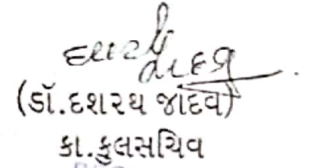 (ડૉ.દશરથ જાદવ)
કા.કુલસચિવ